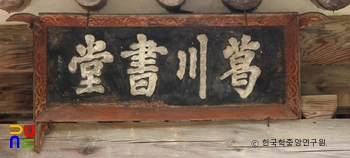 葛川書堂
ⓒ 한국학중앙연구원